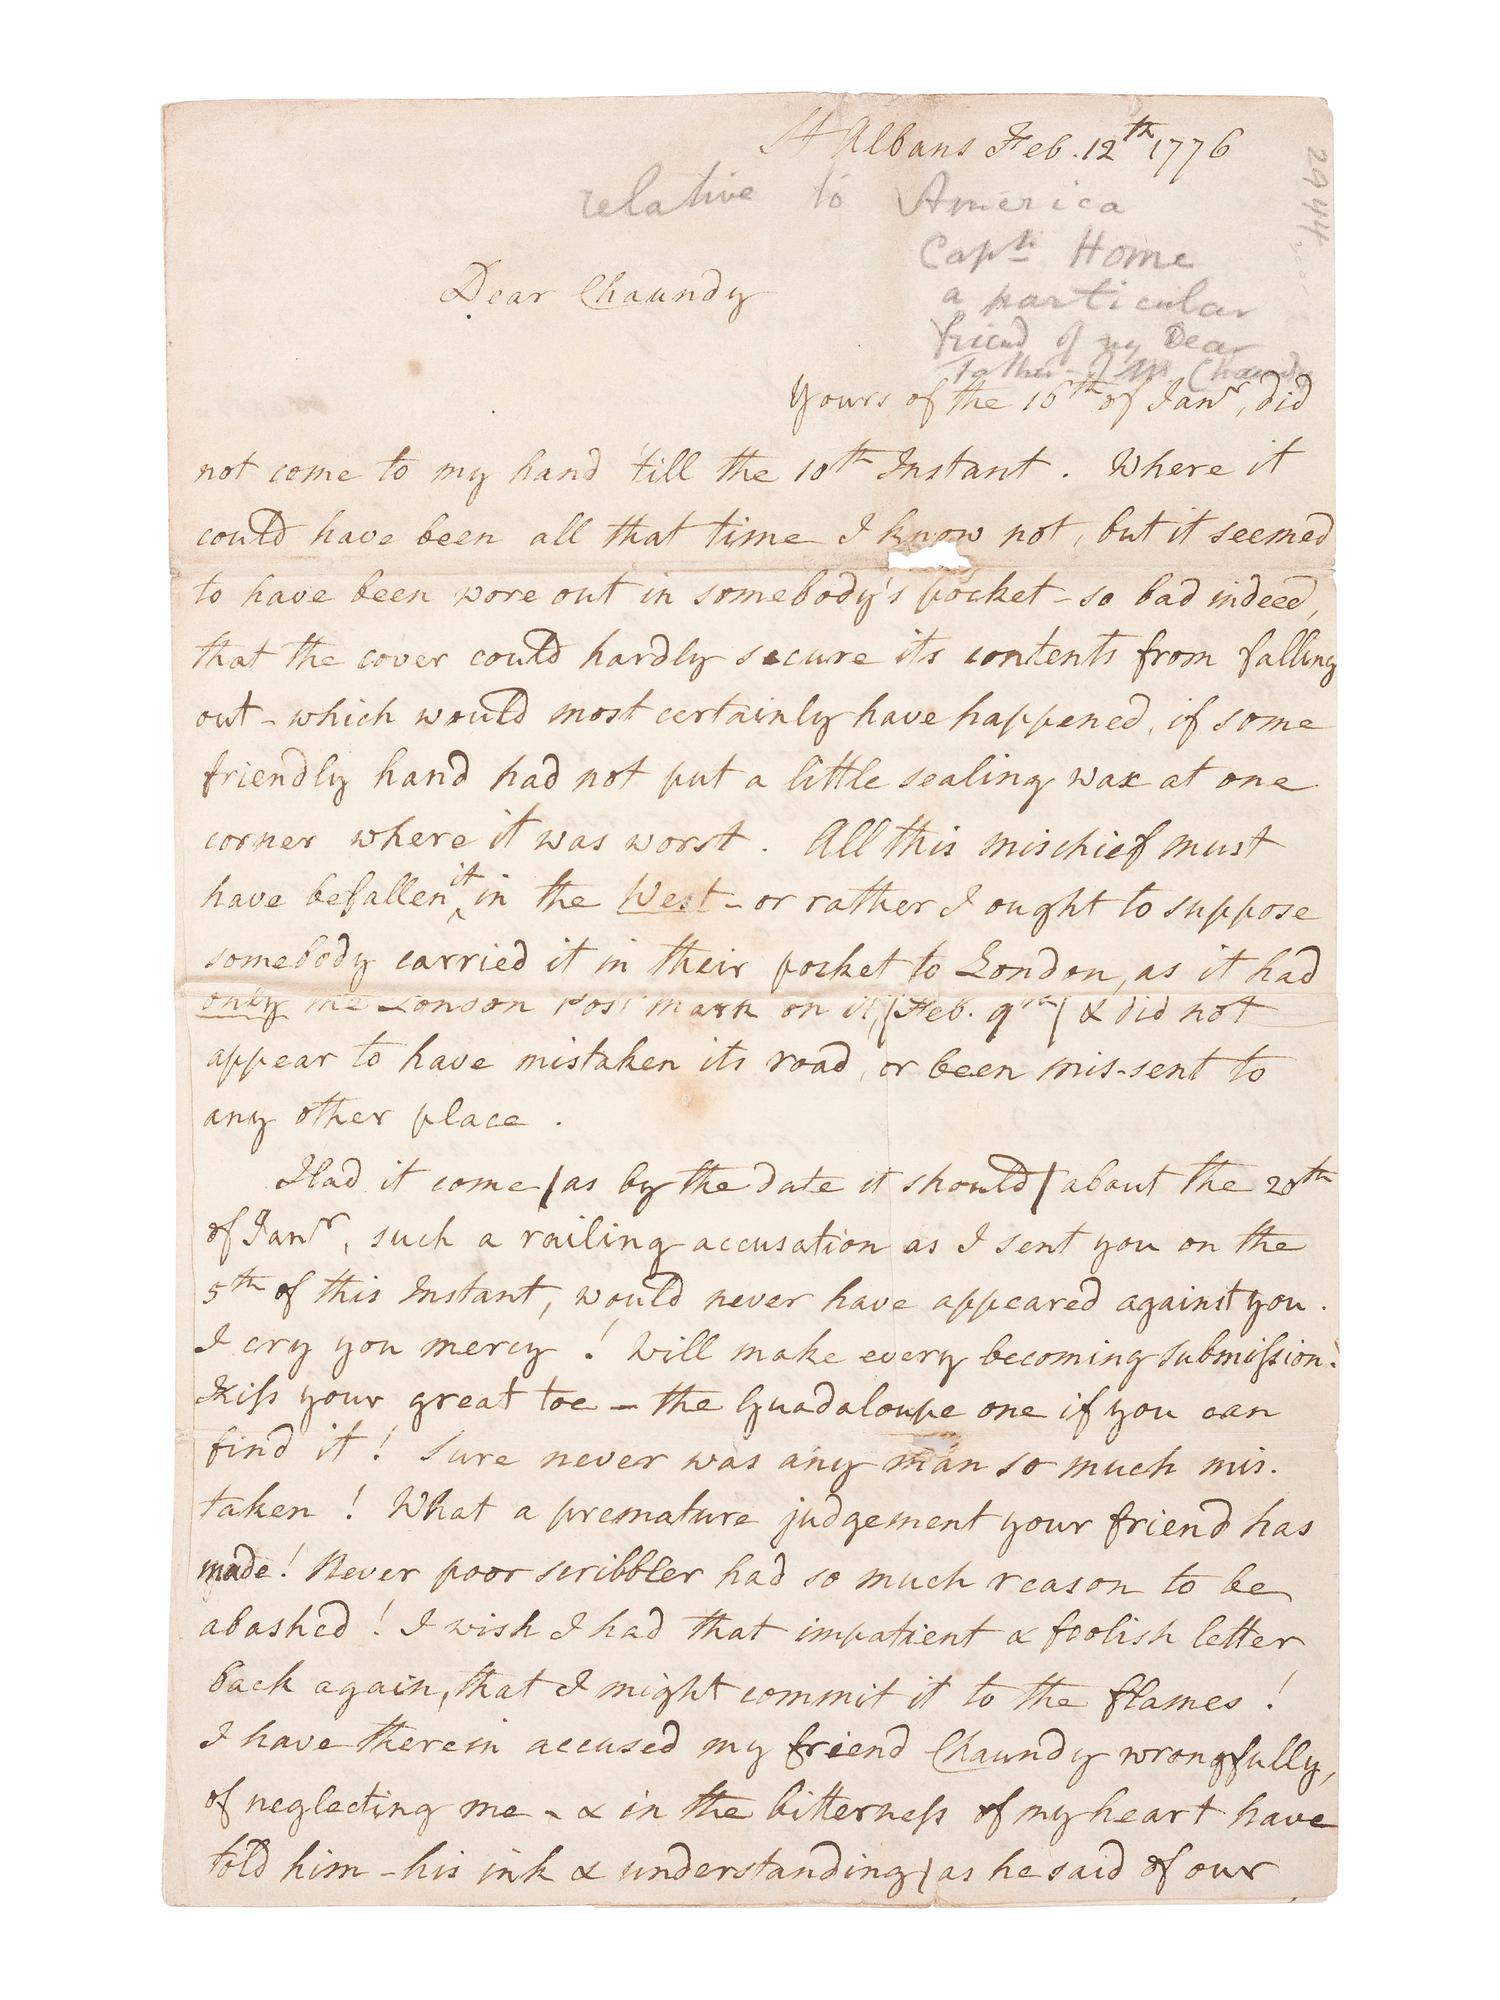 St Albans Feb. 12th 1776
relative to America
2944
Capn Home
a particular
Dear Chaundy
friend of my Dear
Father - Chaundy
Yours of the 16th of Janr, did
not come to my hand 'till the 10th Instant. Where it
could have been all that time I know not, but it seemed
to have been wore out in somebody's pocket - so bad indeed,
that the cover could hardly secure its contents from falling
out - which would most certainly have happened, if some
friendly hand had not put a little sealing wax at one
corner where it was worst. All this mischief must
have befallen it in the West - or rather I ought to suppose
somebody carried it in their pocket to London, as it had
only the London Post mark on it, (Feb. 9th) & did not
appear to have mistaken its road, or been mis-sent to
any other place.
Had it come (as by the date it should) about the 20th
of Janr, such a railing accusation as I sent you on the
5th of this Instant, would never have appeared against you.
I cry you mercy! Will make every becoming submission.
Kiss your great toe - the Guadaloupe one if you can
find it! Sure never was any man so much mis-
taken! What a premature judgement your friend has
made! Never poor scribbler had so much reason to be
abashed! I wish I had that impatient & foolish letter
back again, that I might commit it to the flames!
I have therein accused my friend Chaundy wrongfully,
of neglecting me - & in the bitterness of my heart have
told him - his ink & understanding (as he said of our